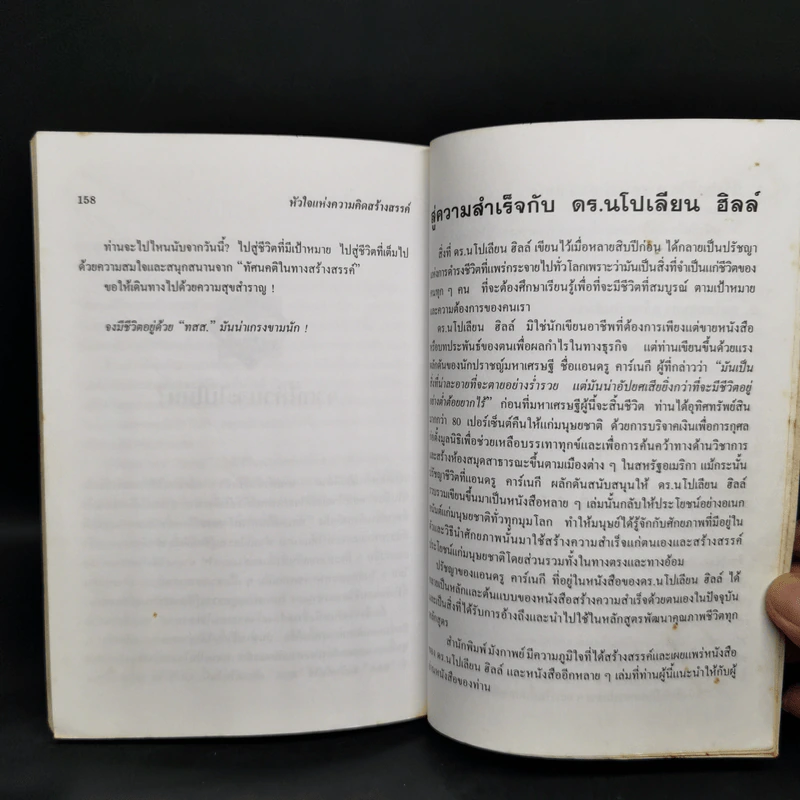 158
หัวใจแห่งความคิดสร้างสรรค์
ท่านจะไปไหนนับจากวันนี้? ไปสู่ชีวิตที่มีเป้าหมาย ไปสู่ชีวิตที่เต็มไป
ด้วยความสมใจและสนุกสนานจาก “ทัศนคติในทางสร้างสรรค์”
ขอให้เดินทางไปด้วยความสุขสำราญ !
จงมีชีวิตอยู่ด้วย “ทสส.” มันน่าเกรงขามนัก !
สู่ความสำเร็จกับ ดร.นโปเลียน ฮิลล์
สิ่งที่ ดร.นโปเลียน ฮิลล์ เขียนไว้เมื่อหลายสิบปีก่อน ได้กลายเป็นปรัชญา
แห่งการดำรงชีวิตที่แพร่กระจายไปทั่วโลกเพราะว่ามันเป็นสิ่งที่จำเป็นแก่ชีวิตของ
คนทุก ๆ คน ที่จะต้องศึกษาเรียนรู้เพื่อที่จะมีชีวิตที่สมบูรณ์ ตามเป้าหมาย
และความต้องการของคนเรา
ดร.นโปเลียน ฮิลล์ มิใช่นักเขียนอาชีพที่ต้องการเพียงแต่ขายหนังสือ
หรือบทประพันธ์ของตนเพื่อผลกำไรในทางธุรกิจ แต่ท่านเขียนขึ้นด้วยแรง
ผลักดันของนักปราชญ์มหาเศรษฐี ชื่อแอนดรู คาร์เนกี ผู้ที่กล่าวว่า “มันเป็น
สิ่งที่น่าละอายที่จะตายอย่างร่ำรวย แต่มันน่าอัปยศเสียยิ่งกว่าที่จะมีชีวิตอยู่
อย่างต่ำต้อยยากไร้” ก่อนที่มหาเศรษฐีผู้นี้จะสิ้นชีวิต ท่านได้อุทิศทรัพย์สิน
มากกว่า 80 เปอร์เซ็นต์คืนให้แก่มนุษยชาติ ด้วยการบริจาคเงินเพื่อการกุศล
จัดตั้งมูลนิธิเพื่อช่วยเหลือบรรเทาทุกข์และเพื่อการค้นคว้าทางด้านวิชาการ
และสร้างห้องสมุดสาธารณะขึ้นตามเมืองต่าง ๆ ในสหรัฐอเมริกา แม้กระนั้น
ปรัชญาชีวิตที่แอนดรู คาร์เนกี ผลักดันสนับสนุนให้ ดร.นโปเลียน ฮิลล์
รวบรวมเขียนขึ้นมาเป็นหนังสือหลาย ๆ เล่มนั้นกลับให้ประโยชน์อย่างอเนก
อนันต์แก่มนุษยชาติทั่วทุกมุมโลก ทำให้มนุษย์ได้รู้จักกับศักยภาพที่มีอยู่ใน
ตัวและวิธีนำศักยภาพนั้นมาใช้สร้างความสำเร็จแก่ตนเองและสร้างสรรค์
ประโยชน์แก่มนุษยชาติโดยส่วนรวมทั้งในทางตรงและทางอ้อม
ปรัชญาของแอนดรู คาร์เนกี ที่อยู่ในหนังสือของดร.นโปเลียน ฮิลล์ ได้
กลายเป็นหลักและต้นแบบของหนังสือสร้างความสำเร็จด้วยตนเองในปัจจุบัน
และเป็นสิ่งที่ได้รับการอ้างถึงและนำไปใช้ในหลักสูตรพัฒนาคุณภาพชีวิตทุก
หลักสูตร
สำนักพิมพ์ มังกาพย์ มีความภูมิใจที่ได้สร้างสรรค์และเผยแพร่หนังสือ
ของ ดร.นโปเลียน ฮิลล์ และหนังสืออีกหลาย ๆ เล่มที่ท่านผู้นี้แนะนำให้กับผู้
อ่านหนังสือของท่าน